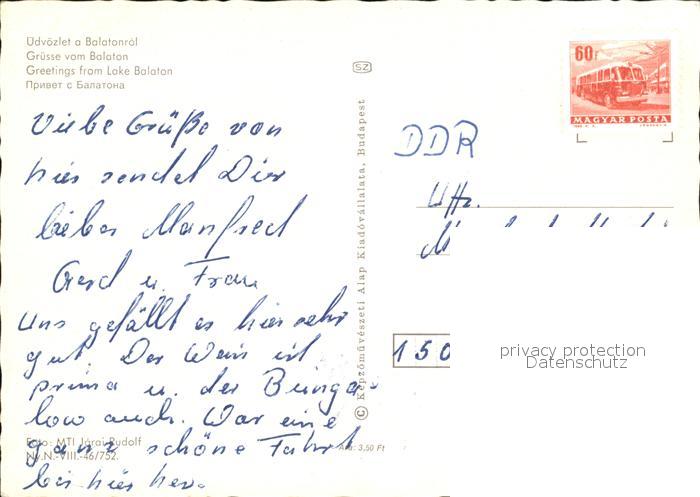 Üdvözlet a Balatonról
Grüsse vom Balaton
Greetings from Lake Balaton
Привет с Балатона
SZ
60f
MAGYAR POSTA
Viele Grüße von
hier sendet Dir
lieber Manfred
Gerd u. Frau
Uns gefällt es hier sehr
gut. Der Wein ist
prima u. der Bunga-
low auch. War eine
ganz schöne Fahrt
bis hier her.
Foto: MTI Járai Rudolf
Ny.N.-VIII.-46/752.
Ára: 3,50 Ft
© Képzőművészeti Alap Kiadóvállalata, Budapest
DDR
150
privacy protection
Datenschutz